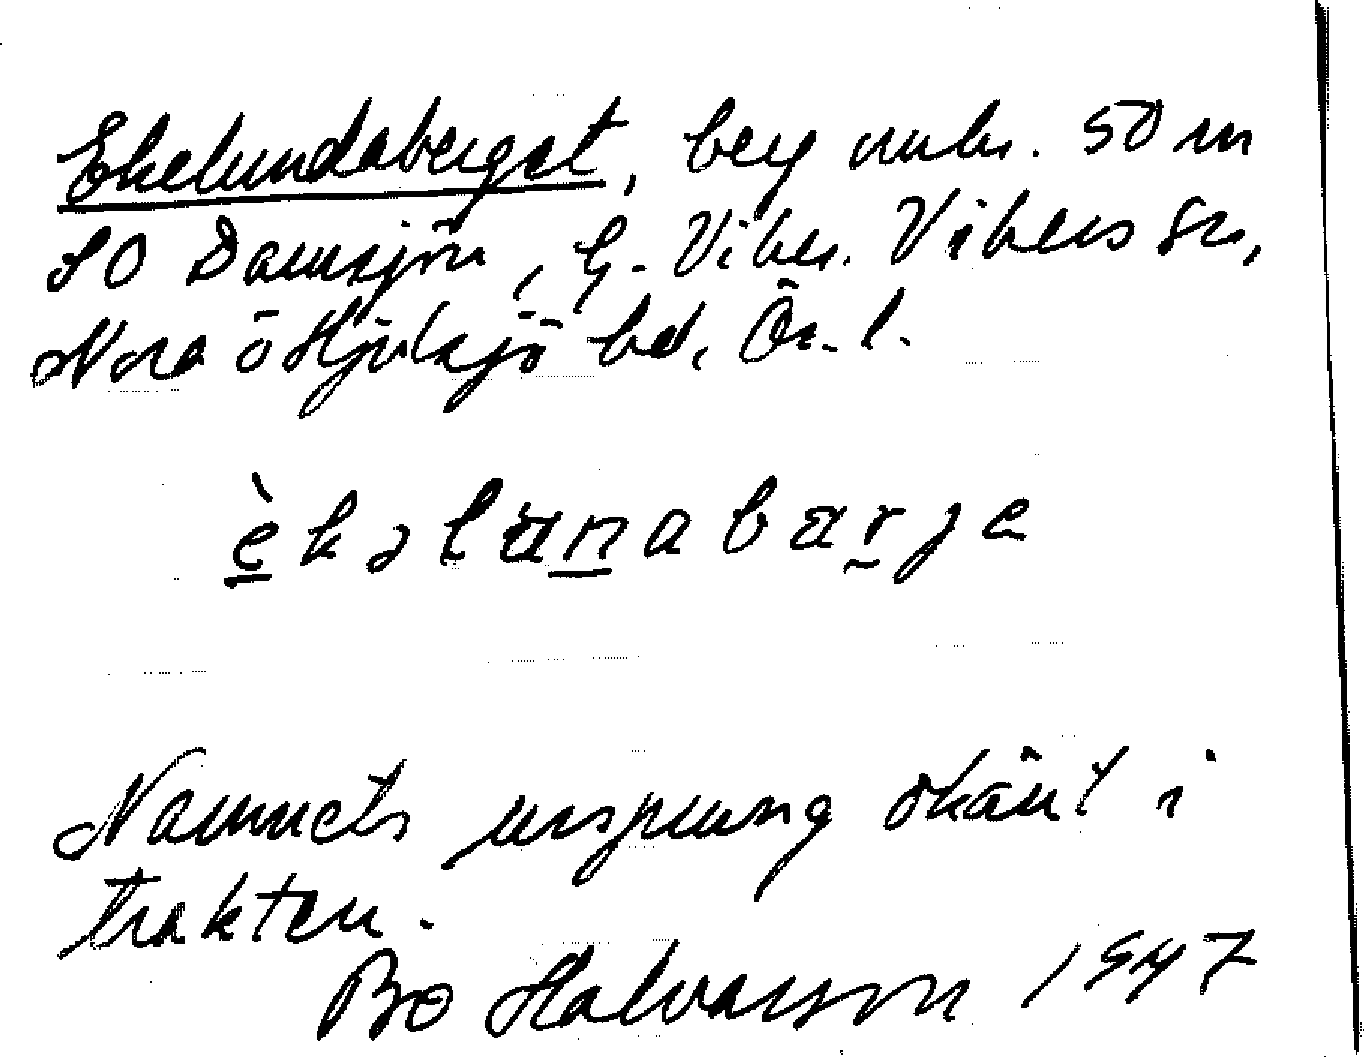 Ekelundaberget, berg omkr. 50 m
SO Damsjön, G. Viker. Vikers sn,
Nora o Hjulsjö bd, Ör. l.
èkəlunabarje
Namnets ursprung okänt i
trakten.
Bo Halvarson 1947